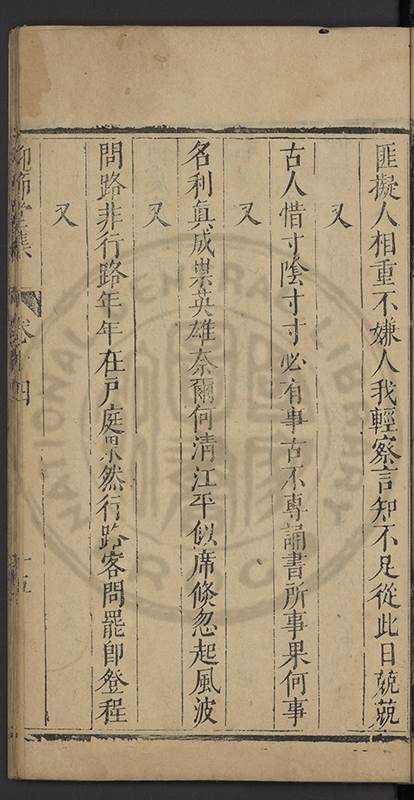 匪擬人相重不嫌人我輕察言知不足從此日兢兢
又
古人惜寸陰寸寸必有事古不專誦書所事果何事
又
名利真成祟英雄奈爾何清江平似席倐忽起風波
又
問路非行路年年在戸庭果然行路客問罷卽登程
又
集
卷
四
NATIONAL CENTRAL LIBRARY